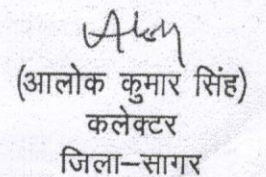 (आलोक कुमार सिंह)
कलेक्टर
जिला–सागर